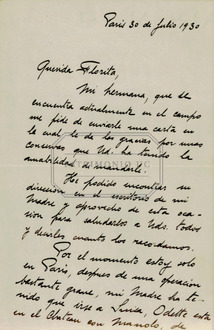 Paris 30 de Julio 1930
Querida Florita,
Mi hermana, que se
encuentra actualmente en el campo
me pide de enviarle una carta en
la cual le de las gracias por unas
conservas que Ud. ha tenido la
amabilidad de mandarle.
PATRIMONIO UC
He podido encontrar su
dirección en el escritorio de mi
Madre y aprovecho de esta oca-
sion para saludarlos a Uds. todos
y decirles cuanto los recordamos.
Por el momento estoy solo
en Paris, despues de una operacion
bastante grave, mi Madre ha te-
nido que irse a Odette esta
en el Chateau con Manolo, de